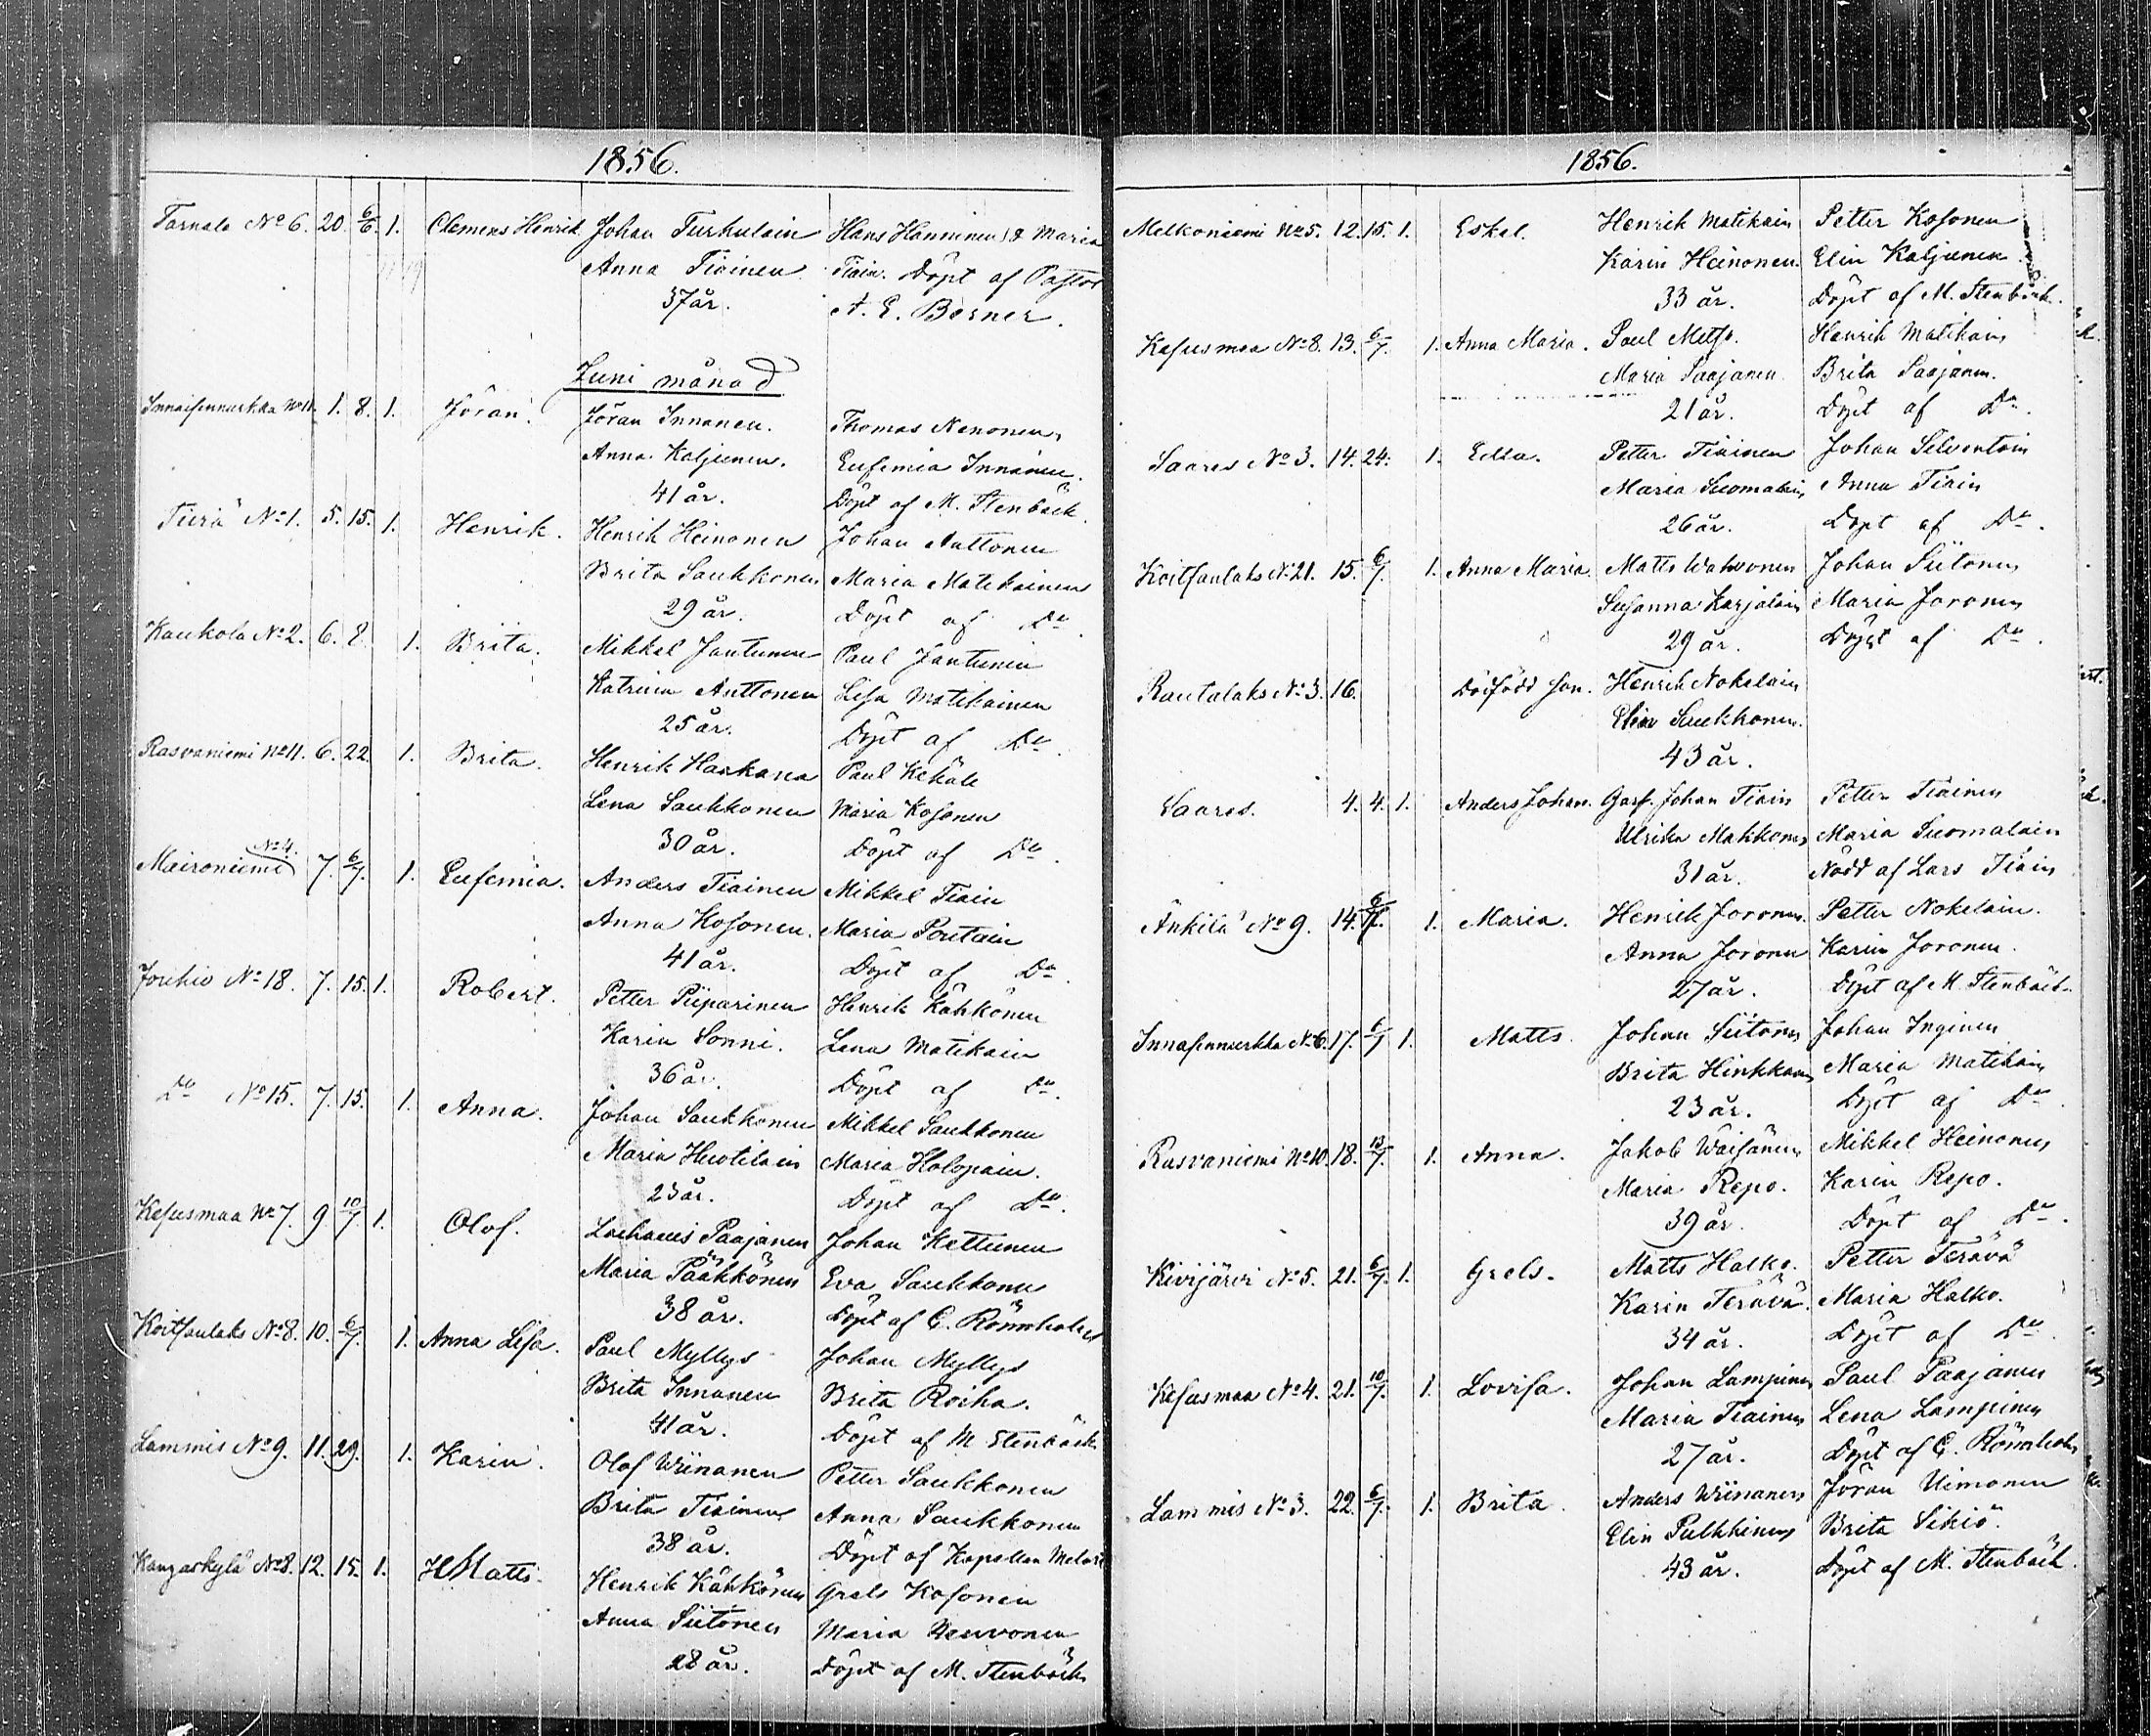 1856.
Tarnala No 6. 20. 6/6. 1. Clemens Henrik Johan Turkulain Hans Hanninen & Maria
Anna Tiainen Tiain. Döpt af Pastor
37 år. A. E. Berner.
Juni månad
No 11. 1. 8. 1. Jöran. Jöran Innanen. Thomas Nenonen
Anna Kaljunen. Eufemia Innanen.
41 år. Döpt af M. Stenbäck.
Tiurä No 1. 5. 15. 1. Henrik. Henrik Heinonen Johan Anttonen
Brita Saukkonen Maria Matikainen
29 år. Döpt af Do
Kaukola No 2. 6. 8. 1. Brita. Mikkel Jantunen Paul Jantunen
Katrina Anttonen Lisa Matikainen
25 år. Döpt af Do.
Rasvaniemi No 11. 6. 22. 1. Brita. Henrik Haakana Paul Kekäle
Lena Saukkonen Maria Kosonen
30 år. Döpt af Do.
No 4.
Maironiemi 7. 6/7. 1. Eufemia. Anders Tiainen Mikkel Tiain
Anna Kosonen. Maria Poutain
41 år. Döpt af Do.
Joukio No 18. 7. 15. 1. Robert. Petter Piiparinen Henrik Kähkönen
Karin Sonni. Lena Matikain
36 år. Döpt af Do.
Do No 15. 7. 15. 1. Anna. Johan Saukkonen Mikkel Saukkonen
Maria Huotilain Maria Holopain.
23 år. Döpt af Do.
Kesusmaa No 7. 9 10/7 1. Olof. Zachaeus Paajanen Johan Kettunen
Maria Pääkkönen Eva Saukkonen
38 år. Döpt af C. Rönnholm
Koitsanlaks No 8. 10. 6/7. 1. Anna Lisa. Paul Myllys Johan Myllys
Brita Innanen Brita Roiha.
41 år. Döpt af M Stenbäck
Lammis No 9. 11. 29. 1. Karin. Olof Wiinanen Petter Saukkonen
Brita Tiainen Anna Saukkonen
38 år. Döpt af Kapellan
Kangaskylä No 8. 12. 15. 1. Matts. Henrik Kähkönen Grels Kosonen
Anna Siitonen Maria
28 år. Döpt af M. Stenbäck
1856.
Melkoniemi No 5. 12. 15. 1. Eskel. Henrik Matikain Petter Kosonen
Karin Heinonen. Elin Kaljunen.
33 år. Döpt af M. Stenbäck.
Kesusmaa No 8. 13. 6/7. 1. Anna Maria. Paul Metso. Henrik Matikain
Maria Paajanen Brita Paajanen.
21 år. Döpt af Do.
Saares No 3. 14. 24. 1. Edla. Petter Tiainen Johan Silventoin
Maria Suomalain Anna Tiain
26 år. Döpt af Do.
Koitsanlaks No 21. 15. 6/7. 1. Anna Maria. Matts Wahvonen Johan Siitonen
Susanna Karjalain Maria Joronen
29 år. Döpt af Do.
Rautalaks No 3. 16. Dödfödd son. Henrik Nokelain
Elin Saukkonen.
43 år.
Saares. 4. 4. 1. Anders Johan. Johan Tiain Petter Tiainen
Ulrika Makkonen Maria Suomalain
31 år. Nödd af Lars Tiain
Änkilä No 9. 14. 6/7. 1. Maria. Henrik Joronen. Petter Nokelain.
Anna Joronen Karin Joronen.
27 år. Döpt af M. Stenbäck.
No 6. 17. 6/7 1. Matts. Johan Siitonen Johan Inginen
Brita Hinkkanen Maria Matikain
23 år. Döpt af Do
Rasvaniemi No 10. 18. 13/7. 1. Anna. Jakob Waisänen Mikkel Heinonen
Maria Repo. Karin Repo.
39 år. Döpt af Do.
Kivijärvi No 5. 21. 6/7. 1. Grels. Matts Halko. Petter Terävä
Karin Terävä. Maria Halko.
34 år. Döpt af Do
Kesusmaa No 4. 21. 10/7. 1. Lovisa. Johan Lampinen Paul Paajanen
Maria Tiainen Lena Lampinen
27 år. Döpt af C. Rönnholm
Lammis No 3. 22. 6/7. 1. Brita. Anders Wiinanen Jöran Uimonen
Elin Pulkkinen Brita Sikiö.
43 år. Döpt af M. Stenbäck.